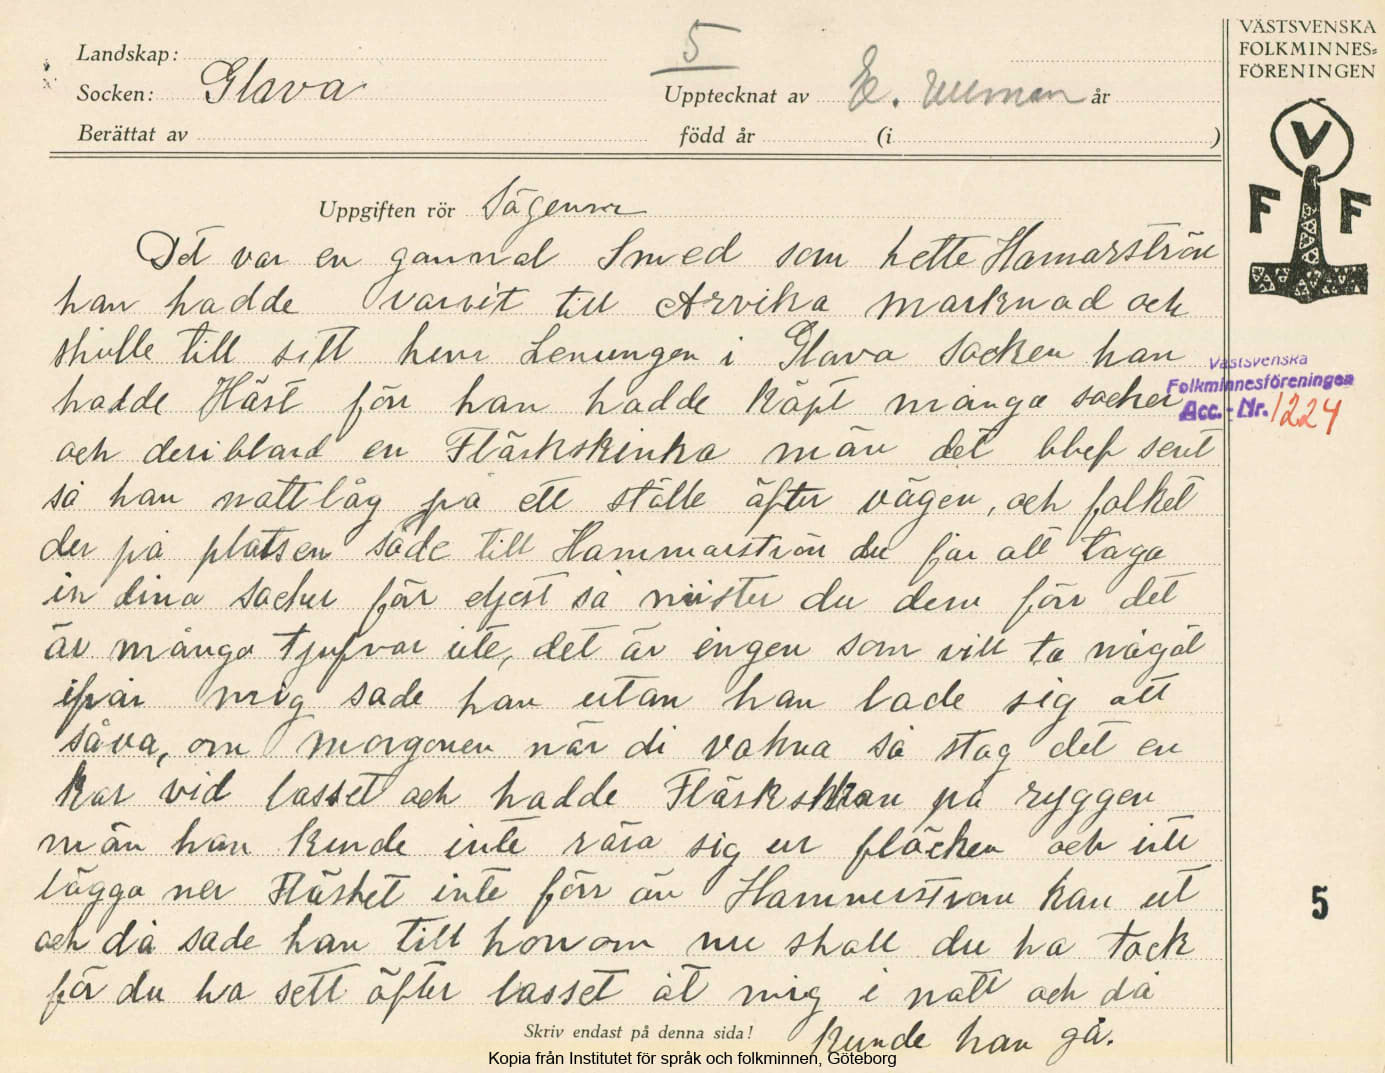 VÄSTSVENSKA
FOLKMINNES=
FÖRENINGEN
V
F F
5
Landskap:
Socken: Glava
Upptecknat av E. Ullman år
Berättat av
född år (i )
Uppgiften rör Sägenur
Det var en gammal Smed som hette Hamarström
han hadde varvit till Arvika marknad och
skulle till sitt hem Lenungen i Glava Socken han
hadde Häst för han hadde köpt många saker
och deribland en Fläskskinka män det blef sent
så han nattlåg på ett ställe äfter vägen, och folket
der på platsen sade till Hammarström du får att taga
in dina saker för eljest så mister du dem för det
är många tjufvar ute, det är ingen som vill ta någåt
ifrån mig sade han utan han lade sig att
såva, om morgonen när di vakna så stog det en
kar vid lasset och hadde Fläskskkan på ryggen
män han kunde inte röra sig ur fläcken och inte
lägga ner Fläsket inte förr än Hammerstram kam ut
och då sade han till honom nu skall du ha tack
för du ha sett äfter lasset åt mig i natt och då
kunde han gå.
Västsvenska
Folkminnesföreningen
Acc. - Nr. 1224
5
Skriv endast på denna sida!
Kopia från Institutet för språk och folkminnen, Göteborg